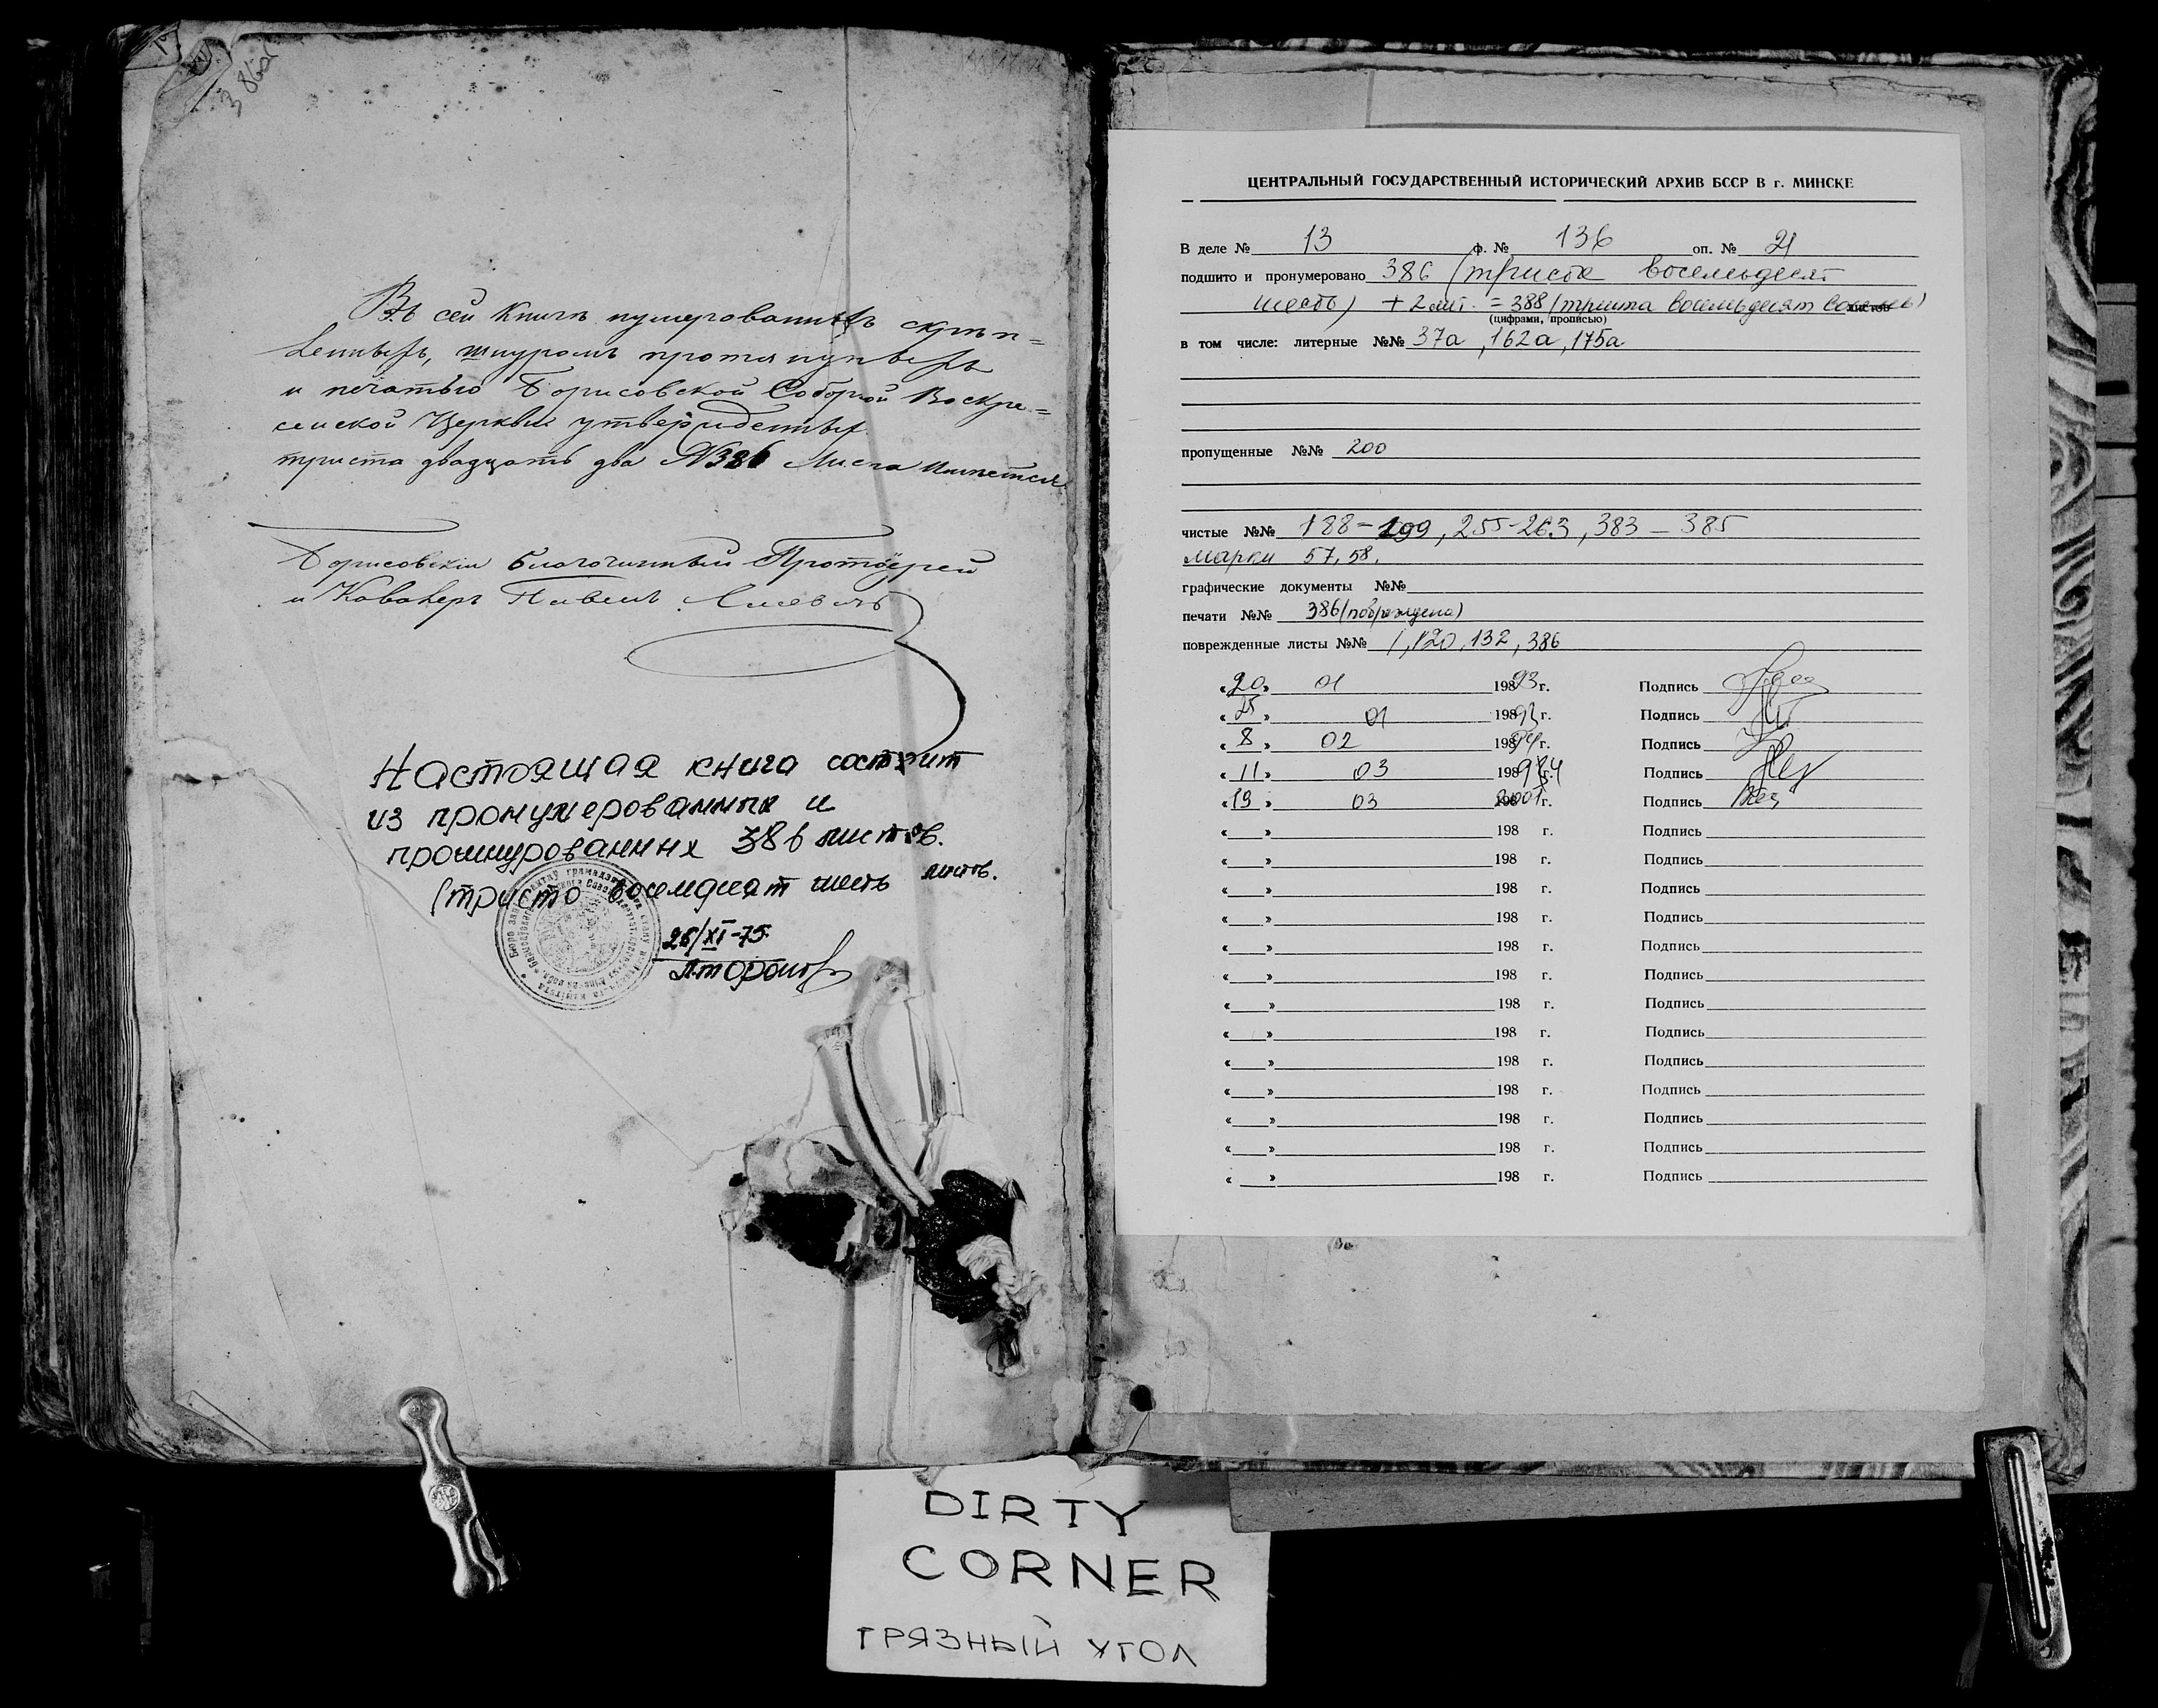 386
Въ сей Книги нумерованныхъ скрѣп=
ленныхъ, шнуромъ протянутыхъ
и печатью Борисовской Соборной Воскре=
сенской Церкви утвержденныхъ
триста двадцать два №386 Листа Имѣется
Борисовскій Благочинный Протоіерей
и Каваλеръ Павелъ
Настоящая книга состоит
из пронумерованных и
прошнурованных 386 листов.
(тристо восемдсят шесть листв.
26/XI-75.
ЦЕНТРАЛЬНЫЙ ГОСУДАРСТВЕННЫЙ ИСТОРИЧЕСКИЙ АРХИВ БССР В г. МИНСКЕ
В деле № 13 ф. № 136 оп. № 21
подшито и пронумеровано 386 (триста восемьдесят
шесть) + 2 лит. = 388 (триста восемьдесят восемь) листов
(цифрами, прописью)
в том числе: литерные №№ 37а, 162а, 175а
пропущенные №№ 200
чистые №№ 188-199, 255-263, 383-385
марки 57, 58.
графические документы №№
печати №№ 386 (повреждена)
поврежденные листы №№ 1, 120, 132, 386
«20» 01 19893г. Подпись
«25» 01 19893г. Подпись
«8» 02 19894г. Подпись
«11» 03 198994г. Подпись
«19» 03 2001г. Подпись
« » 198 г. Подпись
« » 198 г. Подпись
« » 198 г. Подпись
« » 198 г. Подпись
« » 198 г. Подпись
« » 198 г. Подпись
« » 198 г. Подпись
« » 198 г. Подпись
« » 198 г. Подпись
« » 198 г. Подпись
« » 198 г. Подпись
« » 198 г. Подпись
« » 198 г. Подпись
DIRTY
CORNER
ГРЯЗНЫЙ УГОЛ